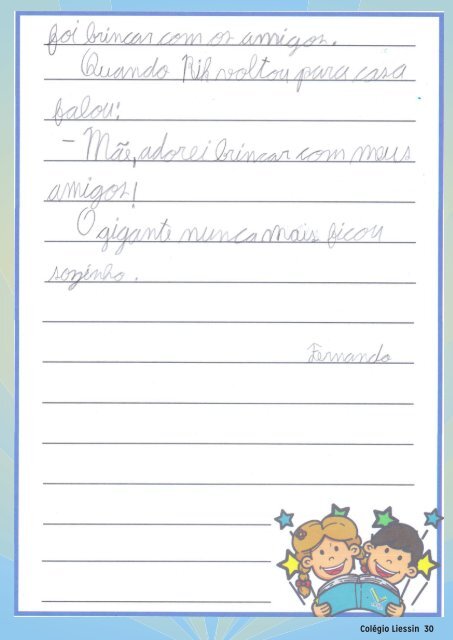 foi brincar com os amigos.
Quando Rik voltou para casa
falou:
- Mãe, adorei brincar com meus
amigos!
O gigante nunca mais ficou
sozinho.
Fernando
Colégio Liessin 30